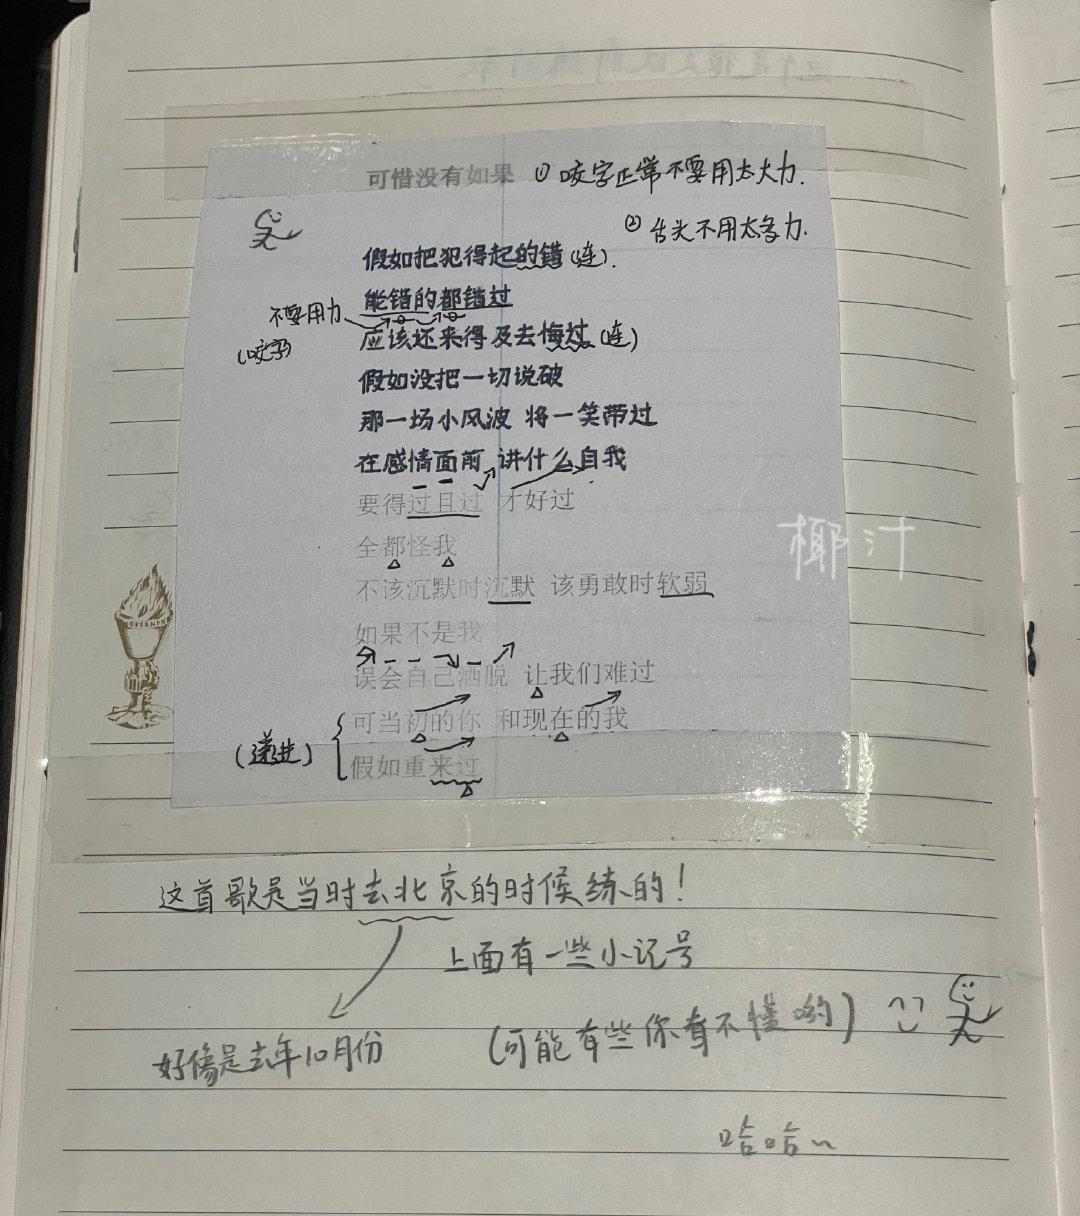 可惜没有如果 ① 咬字正常不要用太大力.
② 舌头不用太多力.
假如把犯得起的错 (连).
能错的都错过
不要用力
(咬字)
应该还来得及去悔过 (连)
假如没把一切说破
那一场小风波 将一笑带过
在感情面前 讲什么自我
要得过且过 才好过
全都怪我
不该沉默时沉默 该勇敢时软弱
如果不是我
误会自己洒脱 让我们难过
可当初的你 和现在的我
(递进)
假如重来过
椰汁
这首歌是当时去北京的时候练的!
上面有一些小记号
好像是去年10月份
(可能有些你看不懂哟)
哈哈~